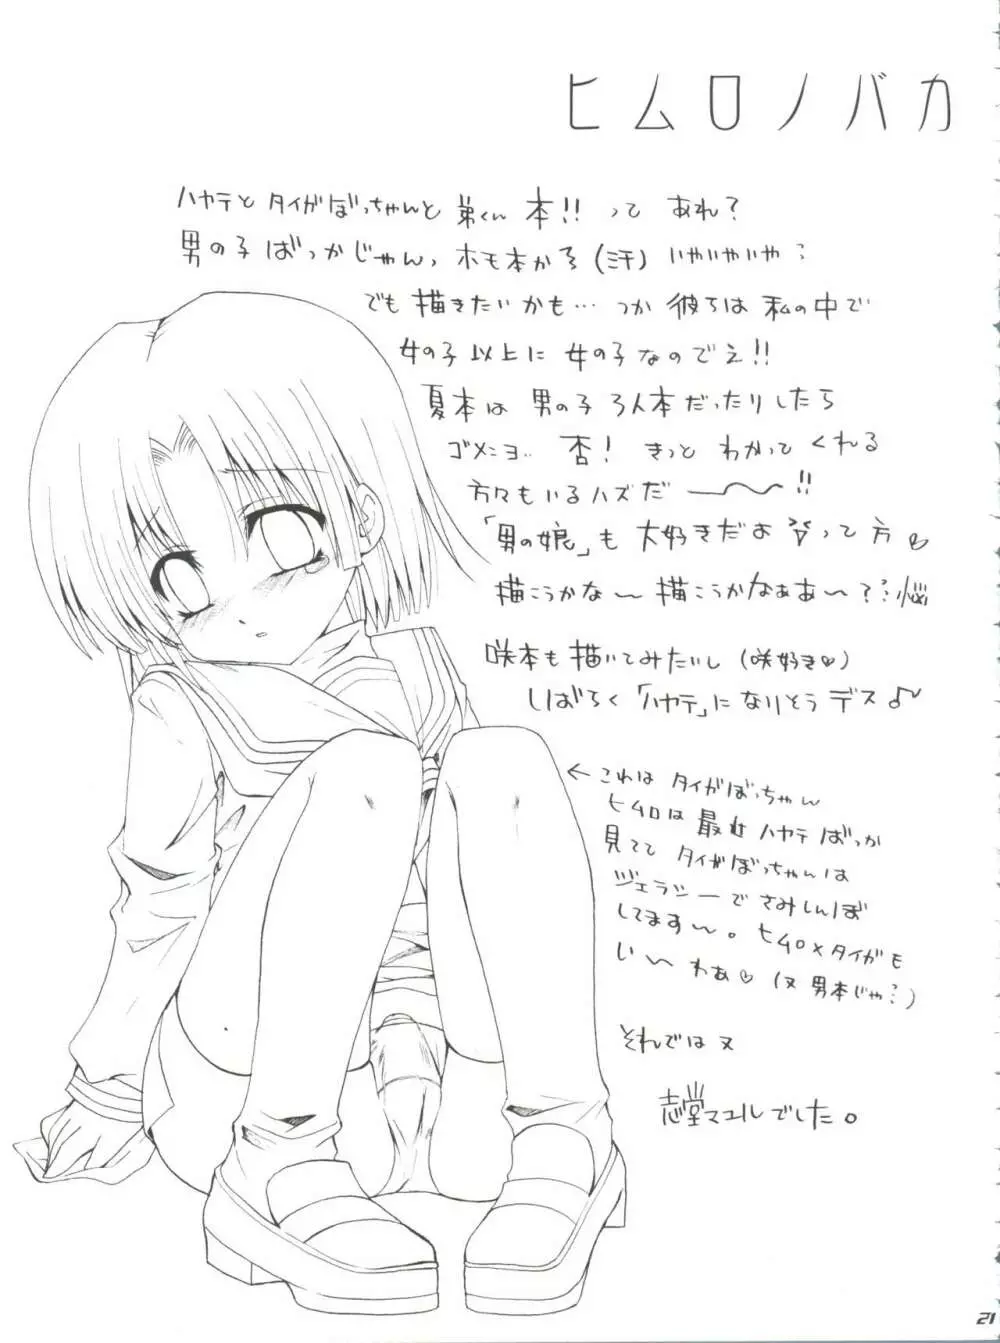 ヒムロノバカ
ハヤテと タイガぼっちゃんと 弟くん 本!! って あれ?
男の子 ばっかじゃんっ ホモ本かよ (汗) いやいやいや?
でも 描きたいかも… つか 彼らは 私の中で
女の子以上に 女の子なのでえ!!
夏本は 男の子 3人本だったりしたら
ゴメニョ.. 否! きっと わかってくれる
方々もいるハズだ 〜!!
「男の娘」も 大好きだよ って 方♡
描こうかな〜 描こうかなぁあ〜??悩
咲本も 描いてみたいし (咲好き♡)
しばらく「ハヤテ」になりそう デス♪
← これは タイガぼっちゃん
ヒムロは 最近 ハヤテ ばっか
見てて タイガぼっちゃんは
ジェラシーで さみしんぼ
してます〜。ヒムロ×タイガも
い〜わぁ♡ (又 男本じゃ?)
それでは 又
志堂マユルでした。
21